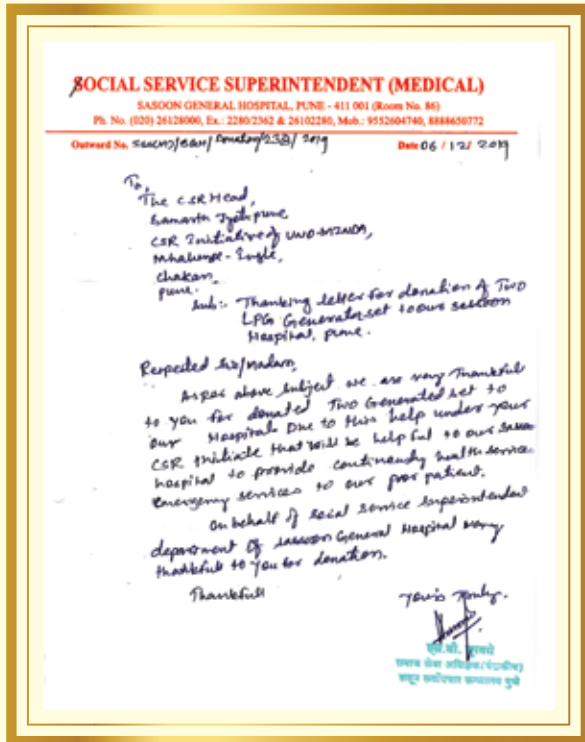 SOCIAL SERVICE SUPERINTENDENT (MEDICAL)
SASOON GENERAL HOSPITAL, PUNE - 411 001 (Room No. 86)
Ph. No. (020) 26128000, Ex.: 2280/2362 & 26102280, Mob.: 9552604740, 8888650772
Outward No. Donation 2019 Date 06 / 12 / 2019
To,
The CSR Head,
Samarth Jyoti pune
CSR Initiative of UNO-MINDA,
Mhalunge - Ingle,
Chakan,
pune.
Sub:- Thanking letter for donation of Two
LPG Generator set to our sassoon
Hospital, pune.
Respected Sir/Madam,
As per above subject we are very Thankful
to you for donated Two Generated set to
our Hospitals Due to this help under your
CSR that will be helpful to our
hospital to provide continuously health service
Emergency services to our poor patient.
On behalf of social service superintendent
department of sassoon General Hospital
thankful to you for donation.
Thankfull
yours truly.
एम.बी.
समाज सेवा अधिक्षक
ससून सर्वोपचार रुग्णालय पुणे